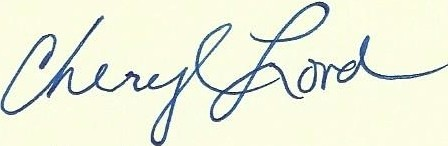 Cheryl Lord